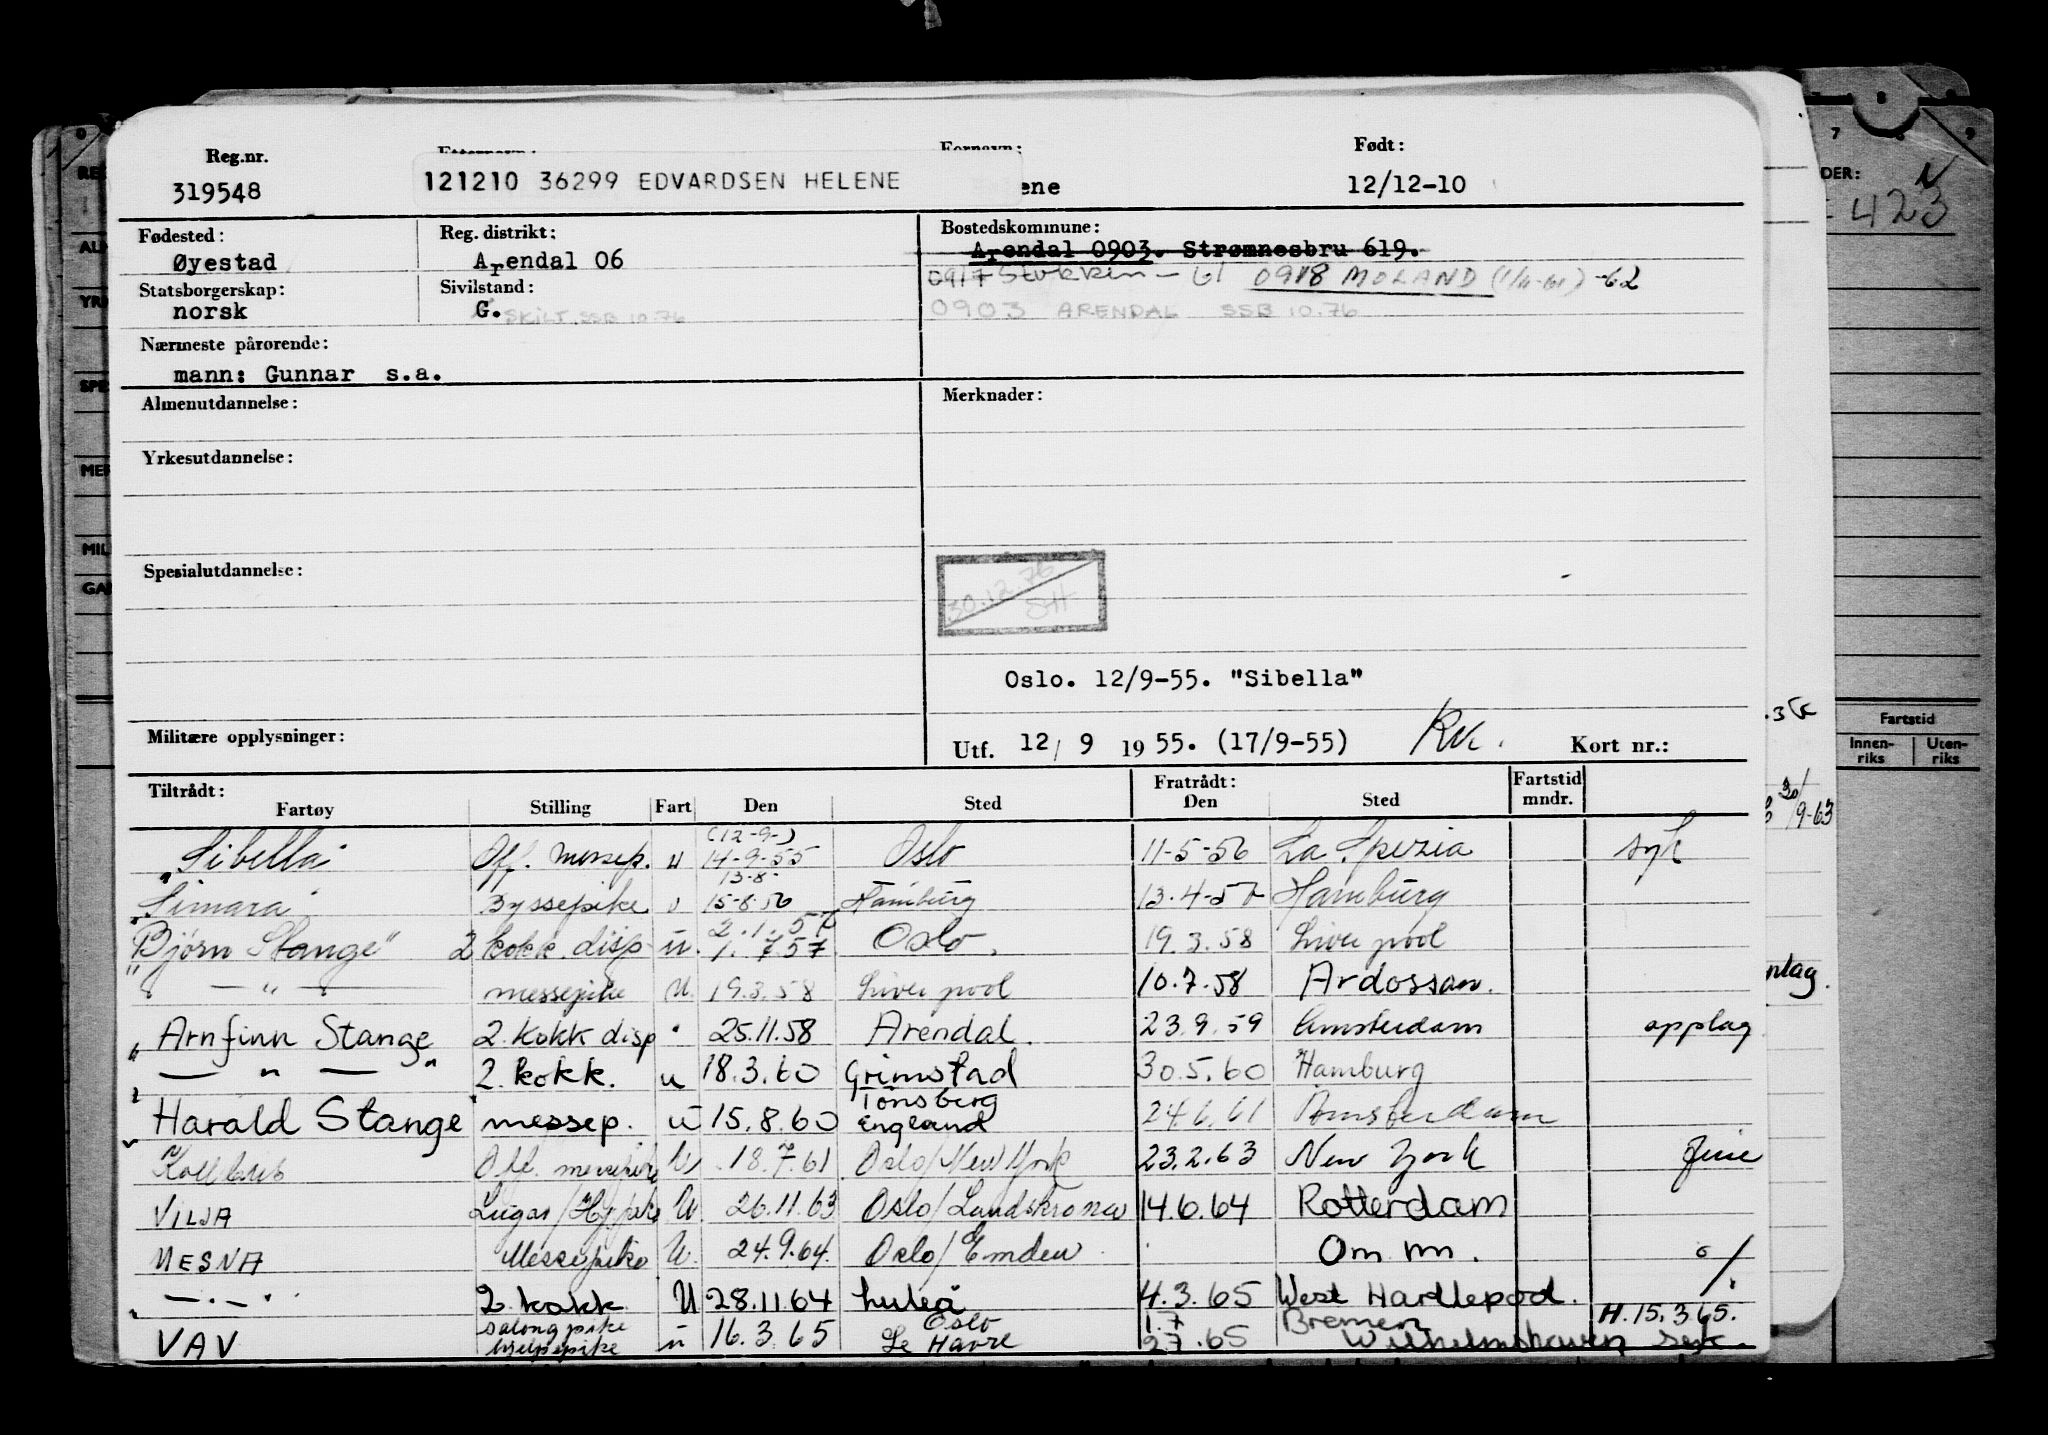 Reg.nr. Etternavn: Fornavn: Født:
319548 121210 36299 EDVARDSEN HELENE ene 12/12-10
Fødested: Reg. distrikt: Bostedskommune:
Øyestad Arendal 06 Arendal 0903. Strømnesbru 619.
0917 Stokken - 61 0918 MOLAND (1/4-61) -62
Statsborgerskap: Sivilstand:
norsk G. SKILT SSB 10.76 0903 ARENDAL SSB 10.76
Nærmeste pårørende:
mann: Gunnar s.a.
Almenutdannelse: Merknader:
Yrkesutdannelse:
Spesialutdannelse:
30.12.76
Oslo. 12/9-55. "Sibella"
Militære opplysninger: Utf. 12/ 9 1955. (17/9-55) Kort nr.:
Tiltrådt: Fratrådt: Fartstid
Fartøy Stilling Fart Den Sted Den Sted mndr.
(12-9-)
"Sibella" Off. messep. u 14-9-55 Oslo 11-5-56 La Spezia syk
13-8-
"Simara" Byssepike u 15-8-56 Hamburg 13-4-57 Hamburg
2.1.58
"Bjørn Stange" 2 kokk disp u. 1.7.57 Oslo. 19.3.58 Liverpool
" — " — messepike U. 19.3.58 Liverpool 10.7.58 Ardossan.
"Arnfinn Stange" 2. kokk disp " 25.11.58 Arendal. 23.9.59 Amsterdam opplag
— " — 2. kokk. u 18.3.60 Grimstad 30.5.60 Hamburg
Tønsberg
"Harald Stange" messep. u 15.8.60 England 24.6.61 Amsterdam
Kollbris Off. messepike U 18.7.61 Oslo/New York 23.2.63 New York ferie
VILJA Lugar/Hj.pike U. 26.11.63 Oslo/Landskrona 14.6.64 Rotterdam
NESNA Messepike U. 24.9.64. Oslo/Emden Om mn. o/
— . — 2. kokk U 28.11.64 Luleå 4.3.65 West Hartlepool. H. 15.3.65.
salongpike Oslo 1.7 Bremen
VAV hjelpepike u 16.3.65 Le Havre 27.65 Wilhelmshaven syk.
DER:
423
Fartstid
Innen-riks Uten-riks
30/9-63
7 8 9